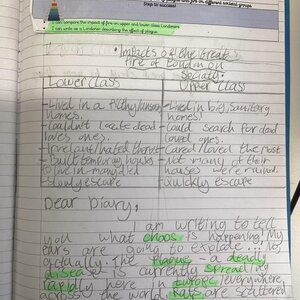 Steps to success:
I can compare the impact of fire on upper and lower class Londoners
I can write as a Londoner describing the effect of plague
Impacts of the Great
Fire of London on
Society:
Lower Class
Upper Class
-Lived in
homes.
-Lived in big, sanitary
homes!
-Couldn't locate dead
loved ones.
-Could search for dead
loved ones.
hated
-Cared/loved the most
-Built temporary houses
to live in-many died
-Not many of their
houses were ruined.
-Slowly escape
-Quickly escape
Dear Diary,
I am writing to tell
you what chaos is happening. My
ears are going to explode
actually the plague - a deadly
disease is currently spreading
rapidly here in Europe, everywhere
across the world. Rats are scattered